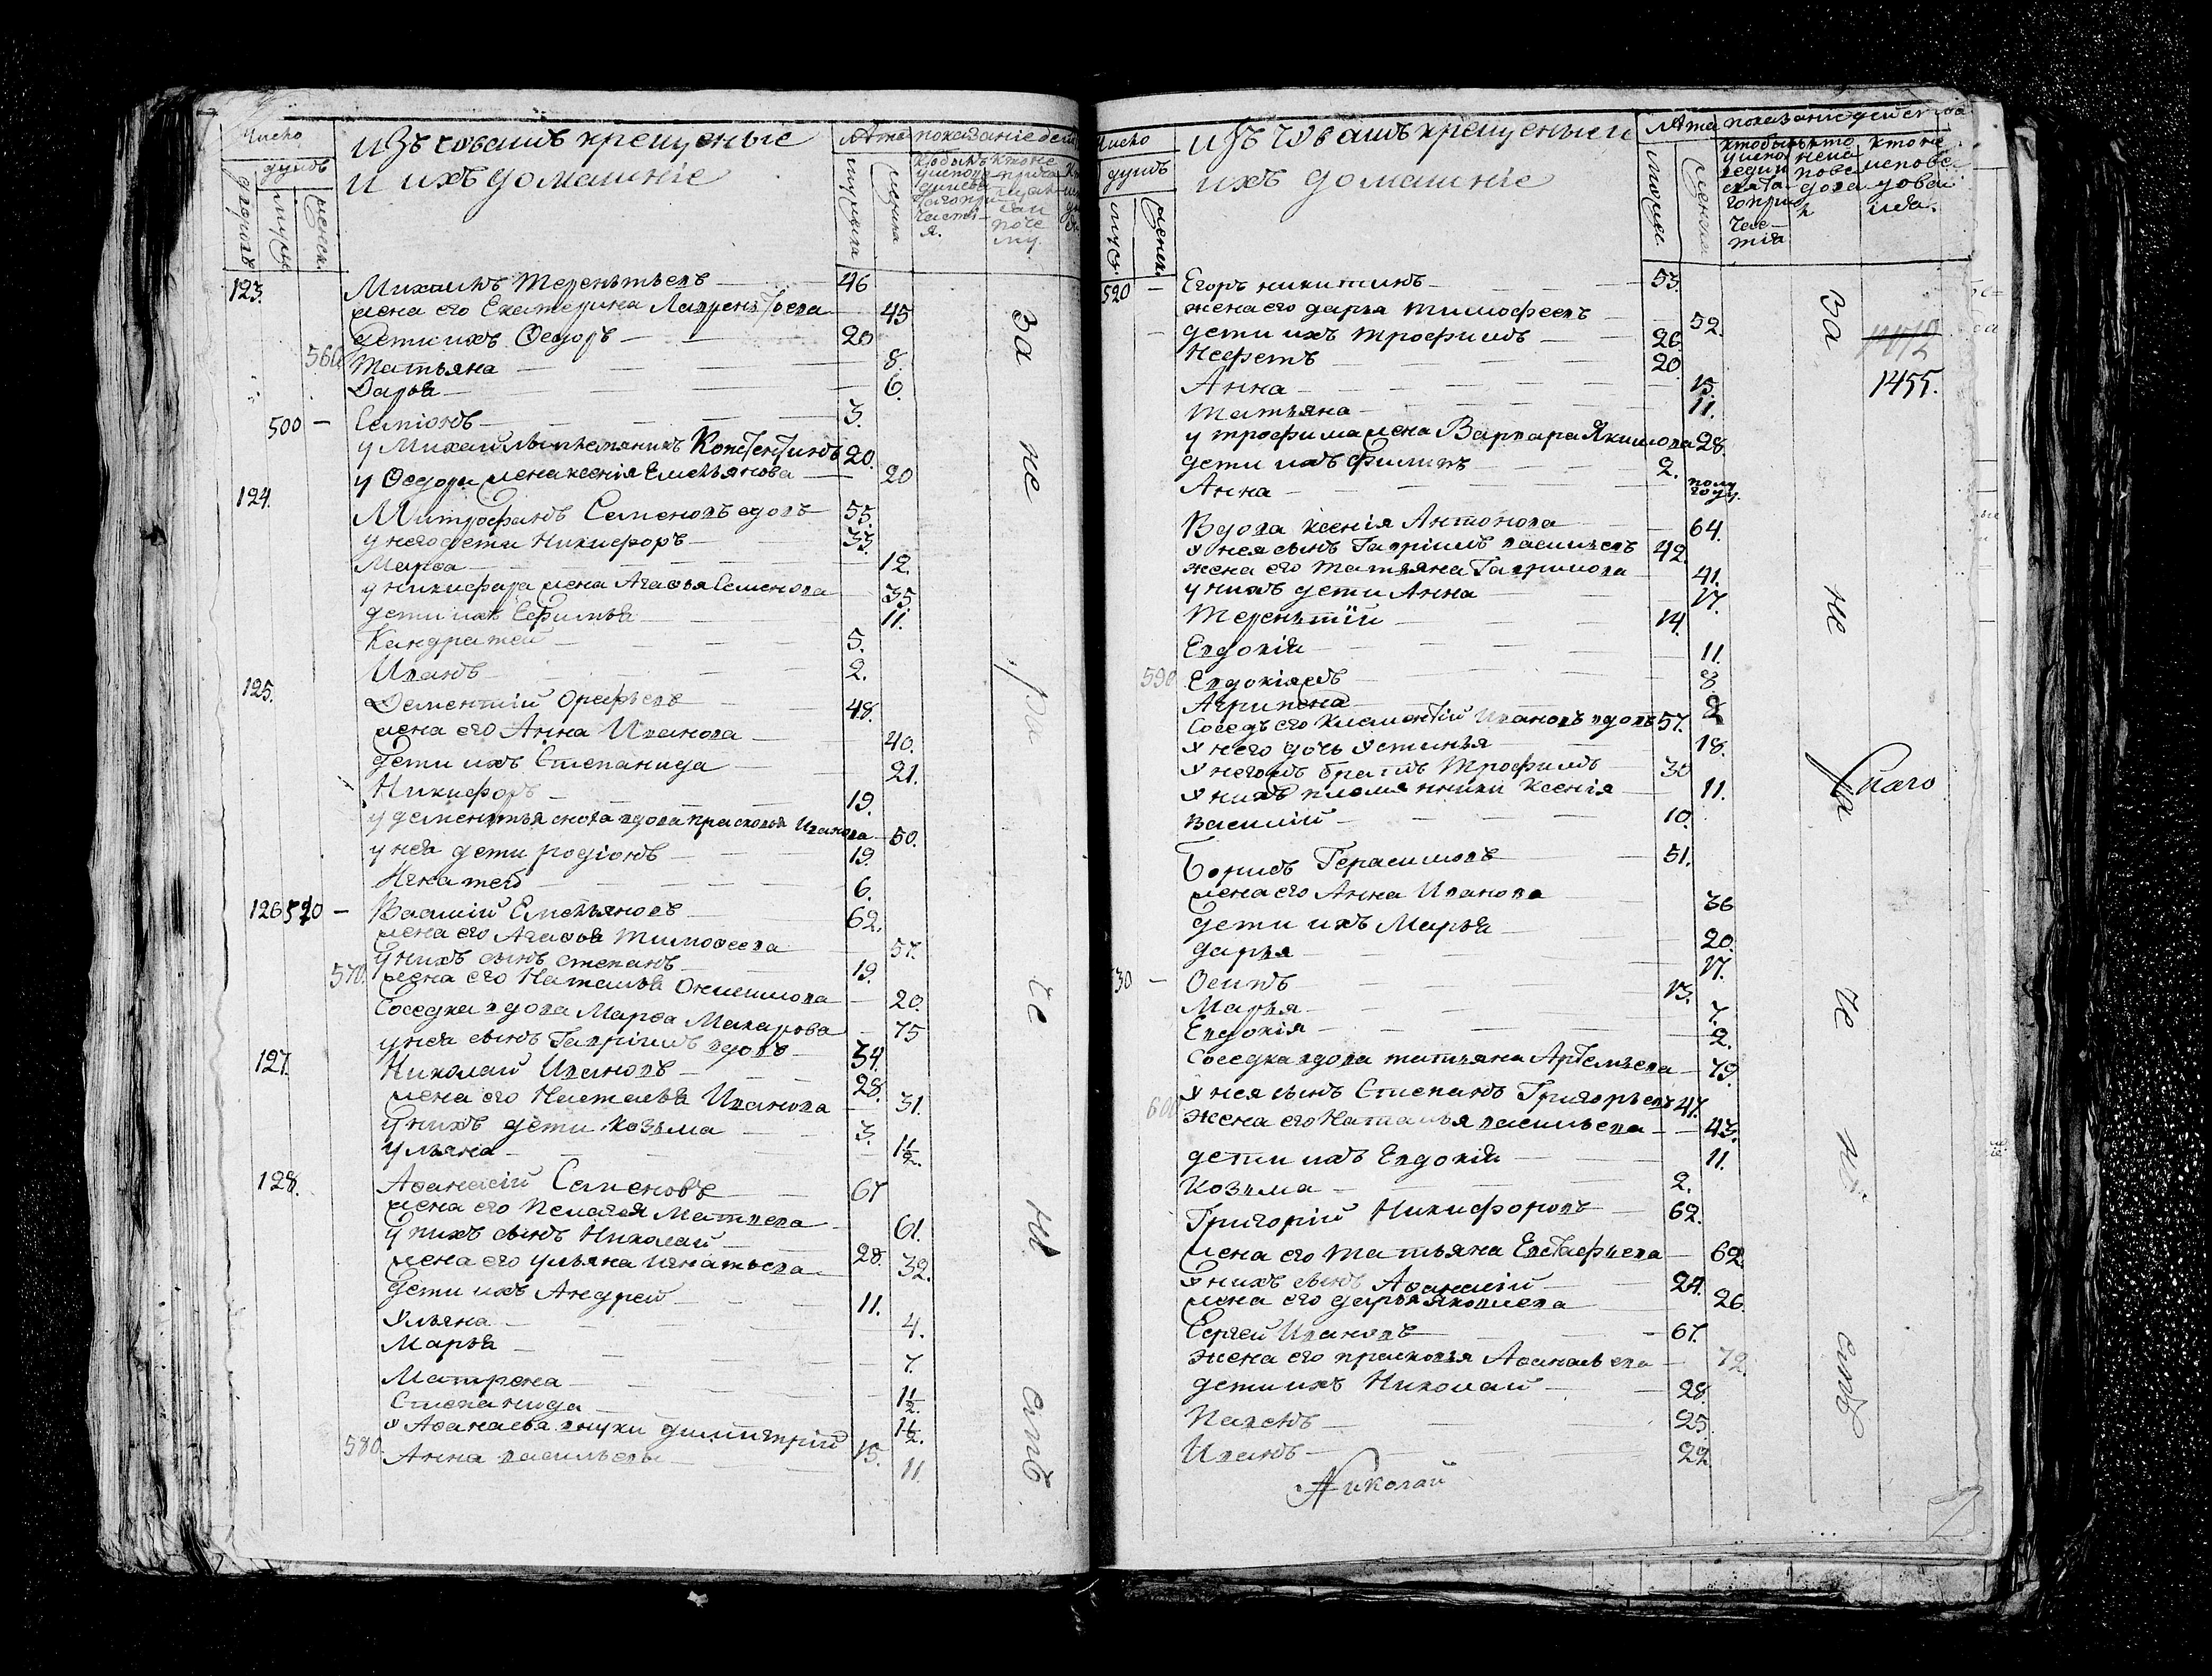 число
душъ
дворовъ
мужск
женск.
изъ чювашъ крещеные
и ихъ домашніе
лѣта
мужеска
женска
показаніе дей
123. Михаилъ Терентьевъ 46
жена его Екатерина Лаврентьева 45
дети ихъ Ѳедоръ 20
560 Татьяна 8.
Дарья 6.
500 — Семіонъ 3.
у Михаилы племяникъ Констентинъ 20.
у Ѳедора жена ксенія Емельянова 20
124. Митрофанъ Семеновъ вдовъ 55.
у него дети Никифоръ 33.
Марѳа 12.
у никифара жена Агаѳья Семенова 35.
дети ихъ Ефимья 11.
Кандратей 5.
Иванъ 2.
125. Дементій Орефьевъ 48.
жена его Анна Иванова 40.
дети ихъ Степанида 21.
Никифоръ 19.
у дементья сноха вдова прасковья Иванова 50.
у нея дети родіонъ 19.
Игнатей 6.
126 510 — Василій Емельяновъ 62.
жена его Агаѳья Тимоѳеева 57.
у нихъ сынъ степанъ 19.
570. жена его Наталья Онисимова 20.
Соседка вдова Марѳа Макарова 75
у нея сынъ Гаврилъ вдовъ 34.
127. Николай Ивановъ 28.
жена его Настасья Иванова 31.
у нихъ дети козьма 3.
ульяна 1½.
128. Аѳанасій Семеновъ 67
жена его Пелагея Матвева 61.
у нихъ сынъ Николай 28.
жена его ульяна игнатьева 32.
дети ихъ Андрей 11.
Ульяна 4.
Марья 7.
Матрена 1½.
Степанида 1½.
у Аѳанасья внуки димитрій 15.
580. Анна васильевы 11.
За не ра че ни емъ
число
душъ
мужс.
женск.
изъ чювашъ крещеныи
ихъ домашніе
лѣта
мужес.
женска
показаніе действа
520 — Егоръ никитинъ 53.
жена его дарья тимофеевъ 52.
дети ихъ трофимъ 26
Нефетъ 20.
Анна 15.
татьяна 11.
у трофима жена Варвара Якимова 28.
дети ихъ филипъ 2.
Анна полу году.
Вдова ксенія Антонова 64.
у нея сынъ Гаврилъ васильевъ 42.
жена его татьяна Гаврилова 41.
у нихъ дети Анна 17.
Терентій 14.
Евдокія 11.
590 Евдокія жъ 8.
Агрипена 2
Соседъ его Климентій Ивановъ вдовъ 57.
у него дочь устинья 18.
у него жъ братъ Трофимъ 30
у нихъ племянники ксенія 11.
василій 10.
Борисъ Герасимовъ 51.
жена его Анна Иванова 36
дети ихъ Марья 20.
дарья 17.
530 — Осипъ 13.
Марья 7.
Евдокія 2.
Соседка вдова татьяна Артемьева 79.
у нея сынъ Степанъ Григорьевъ 47.
600 жена его Наталья васильева 43.
дети ихъ Евдокія 11.
козьма 2.
Григорій Никифоровъ 62.
жена его татьяна Евстафиева 62
у нихъ сынъ Аѳанасій 24.
жена его дарья яковлева 26
Сергей Ивановъ 67.
жена его прасковья Аѳанасьева 72.
дети ихъ Николай 28.
Павелъ 25.
Иванъ 22
Николай
За не ра че ні емъ
1455.